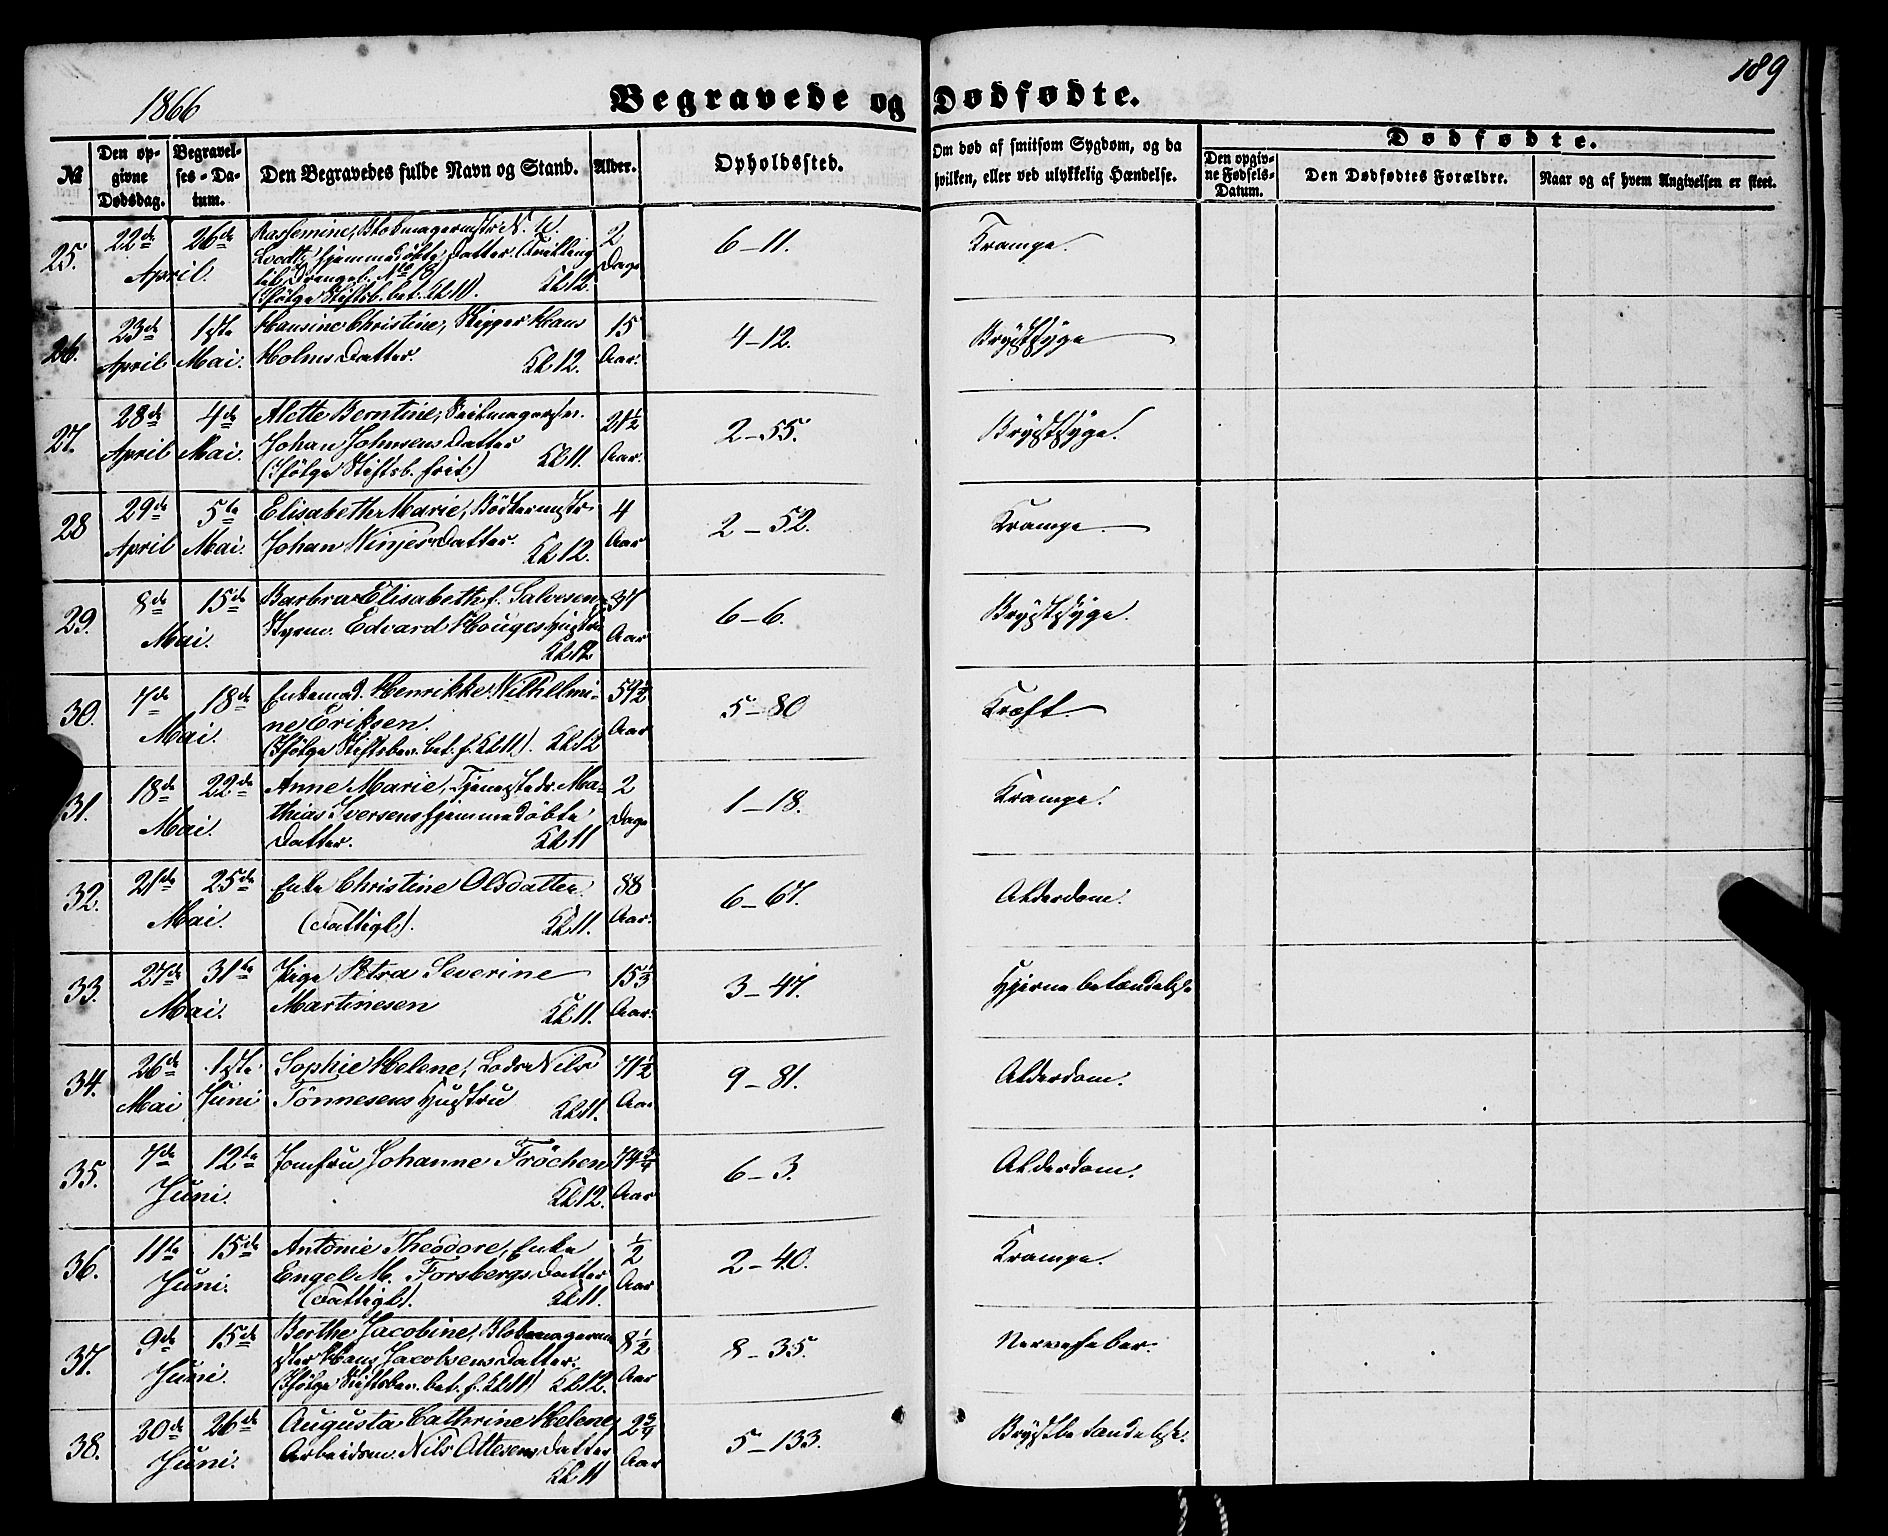 1866
Begravede og Dødfødte.
189
№
Den opgivne Dødsdag.
Begravelses-Datum.
Den Begravedes fulde Navn og Stand.
Alder.
Opholdssted.
Om død af smitsom Sygdom, og da hvilken, eller ved ulykkelig Hændelse.
Dødfødte.
Den opgivne Fødsels-Datum.
Den Dødfødtes Forældre.
Naar og af hvem Angivelsen er skeet.
25. 22de 26de April. Blokmagermstr N. hjemmedøbte Datter. (Tvilling til Drengeb. No 18) (Ifølge Stiftsb. bet. Kl 11). Kl 12. 2 Dage 6-11. Krampe.
26. 23de April 1ste Mai. Hansine Christine, Skipper Hans
Holms Datter. Kl 12. 15 Aar. 4-12. Brystsyge
27. 28de April 4de Mai. Alette Berntine, Seilmagersv.
Johan Johnsens Datter
(Ifølge Stiftsb. frit.) Kl 11. 21½ Aar. 2-55. Brystsyge.
28 29de April 5te Mai. Elisabeth Marie, Bødkermstr
Johan Winjes Datter. Kl 12. 4 Aar 2-52. Krampe
29. 8de 15de Mai. Barbra Elisabeth f. Salvesen,
Styrm. Edvard Houges Hustru
Kl 12 37 Aar 6-6. Brystsyge.
30. 7de 18de Mai. Enkemad. Henrikke Wilhelmi-
ne Eriksen.
(Ifølge Stiftsbev. bet. f. Kl 11). Kl 12 59½ Aar 5-80 Kræft.
31. 18de 22de Mai. Anne Marie, Tjenestedr. Ma-
thias Iversens hjemmedøbte
Datter. Kl 11 2 Dage 1-18. Krampe.
32. 21de 25de Mai. Enke Christine Olsdatter.
(Fattigl). Kl 11. 88 Aar. 6-67. Alderdom.
33. 27de 31te Mai. Pige Petra Severine
Martinesen Kl 11. 15⅓ Aar. 3-47. Hjernebetændelse
34. 26de Mai 1ste Juni Sophie Helene, Lods Nils
Tønnesens Hustru Kl 11. 71½ Aar 9-81. Alderdom.
35. 7de 12te Juni. Jomfru Johanne Fröchen
Kl 12. 79¾ Aar 6-3. Alderdom.
36. 11te 15de Juni. Antonie Theodore, Enke
Engel M. Forsbergs Datter
(Fattigl). Kl 11. ½ Aar 2-40. Krampe.
37. 9de 15de Juni. Berthe Jacobine, Blokmagerm-
ster Hans Jacobsens Datter.
(Ifølge Stiftsbev. bet. f. Kl 11) Kl 12. 8½ Aar 8-35. Nervefeber.
38. 20de 26de Juni. Augusta Cathrine Helene,
Arbeidsm. Nils Attesens Datter
Kl 11 2¾ Aar 5-133. Brystbetændelse.